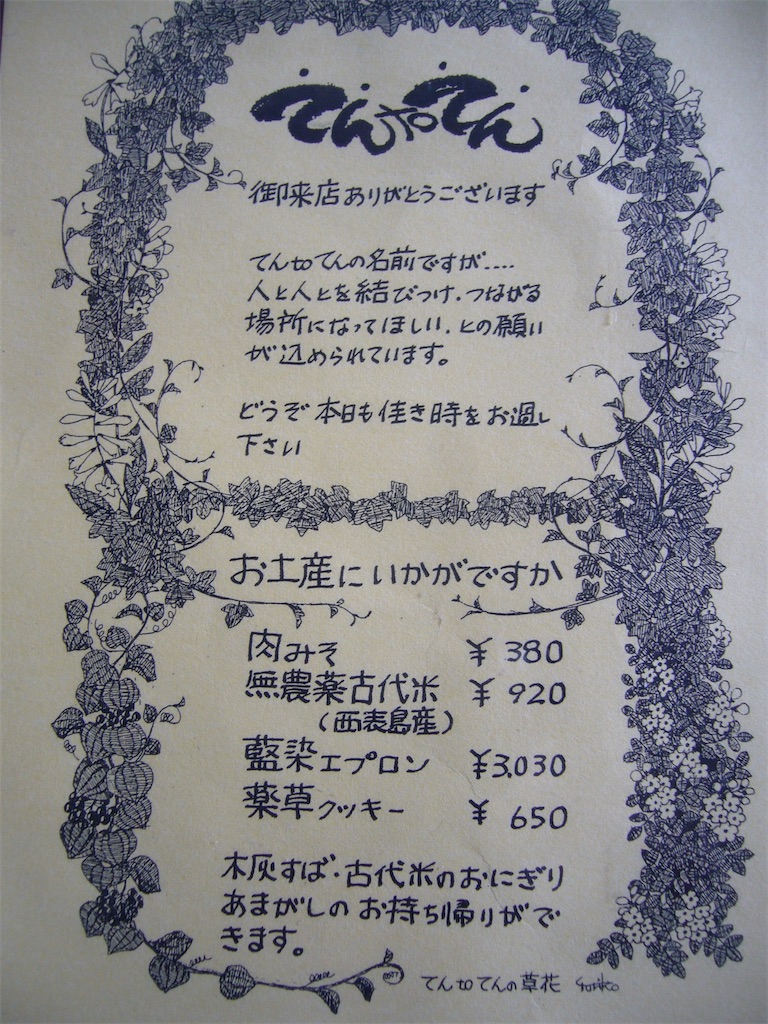 てんtoてん
御来店ありがとうございます
てんtoてんの名前ですが....
人と人とを結びつけ.つながる
場所になってほしい.との願い
が込められています。
どうぞ本日も佳き時をお過し
下さい
お土産にいかがですか
肉みそ ¥380
無農薬古代米 ¥920
(西表島産)
藍染エプロン ¥3,030
薬草クッキー ¥650
木灰すば・古代米のおにぎり
あまがしのお持ち帰りがで
きます。
てんtoてんの草花